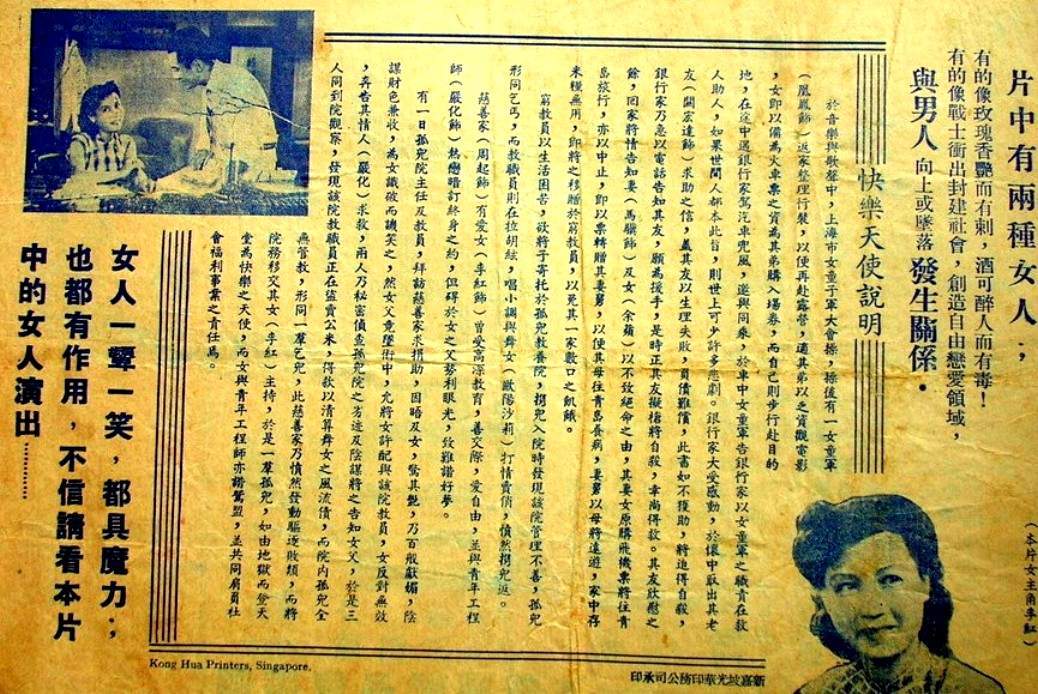 片中有兩種女人:
有的像玫瑰香艷而有刺,酒可醉人而有毒!
有的像戰士衝出封建社會,創造自由戀愛領域,
與男人向上或墜落發生關係.
(本片女主角李紅)
快樂天使說明
於音樂與歌聲中,上海市女童子軍大會操,操後有一女童軍
(鳳凰飾)返家整理行裝,以便再赴露營,適其弟以乏資觀電影
,女即以備為火車票之資為其弟購入場券,而自己則步行赴目的
地,在途中遇銀行家駕汽車兜風,邀與同乘,於車中女童軍告銀行家以女童軍之職責在救
人助人,如果世間人都本此旨,則世上可少許多悲劇。銀行家大受感動,於懷中取出其老
友(關宏達飾)求助之信,蓋其友以生理失敗,負債難償,此書如不獲助,將迫得自殺,
銀行家乃急以電話告知其友,願為援手,是時正其友擬槍將自殺,幸尚得救。其友欣慰之
餘,回家將情告知妻(馬驥飾)及女(余蘋)以不致絕命之由,其妻女原購飛機票將往青
島旅行,亦以中止,即以票轉贈其妻舅,以使其母往青島養病,妻舅以母將遠遊,家中存
米糧無用,即將之移贈於窮教員,以免其一家數口之飢餓。
窮教員以生活困苦,欲將子寄托於孤兒教養院,携兒入院時發現該院管理不善,孤兒
形同乞丐,而教職員則在拉胡絃,唱小調與舞女(歐陽沙莉)打情賣俏,憤然携兒返。
慈善家(周起飾)有愛女(李紅飾)曾受高深教育,善交際,愛自由,並與青年工程
師(嚴化飾)熱戀暗訂終身之約,但碍於女之父勢利眼光,致難諧好夢。
有一日孤兒院主任及教員,拜訪慈善家求捐助,因晤及女,驚其艷,乃百般獻媚,陰
謀財色兼收,為女識破而譏笑之,然女父竟墮術中,允將女許配與該院教員,女反對無效
,奔告其情人(嚴化)求救,兩人乃秘密偵查孤兒院之劣迹及陰謀將之告知女父,於是三
人同到院觀察,發現該院教職員正在盜賣公米,得款以清算舞女之風流債,而院內孤兒全
無管教,形同一羣乞兒,此慈善家乃憤然發動驅逐敗類,而將
院務移交其女(李紅)主持,於是一羣孤兒,如由地獄而登天
堂為快樂之天使,而女與青年工程師亦諧鴛盟,並共同肩負社
會福利事業之責任焉。
女人一顰一笑,都具魔力;
也都有作用,不信請看本片
中的女人演出............
Kong Hua Printers, Singapore.
新嘉坡光華印務公司承印